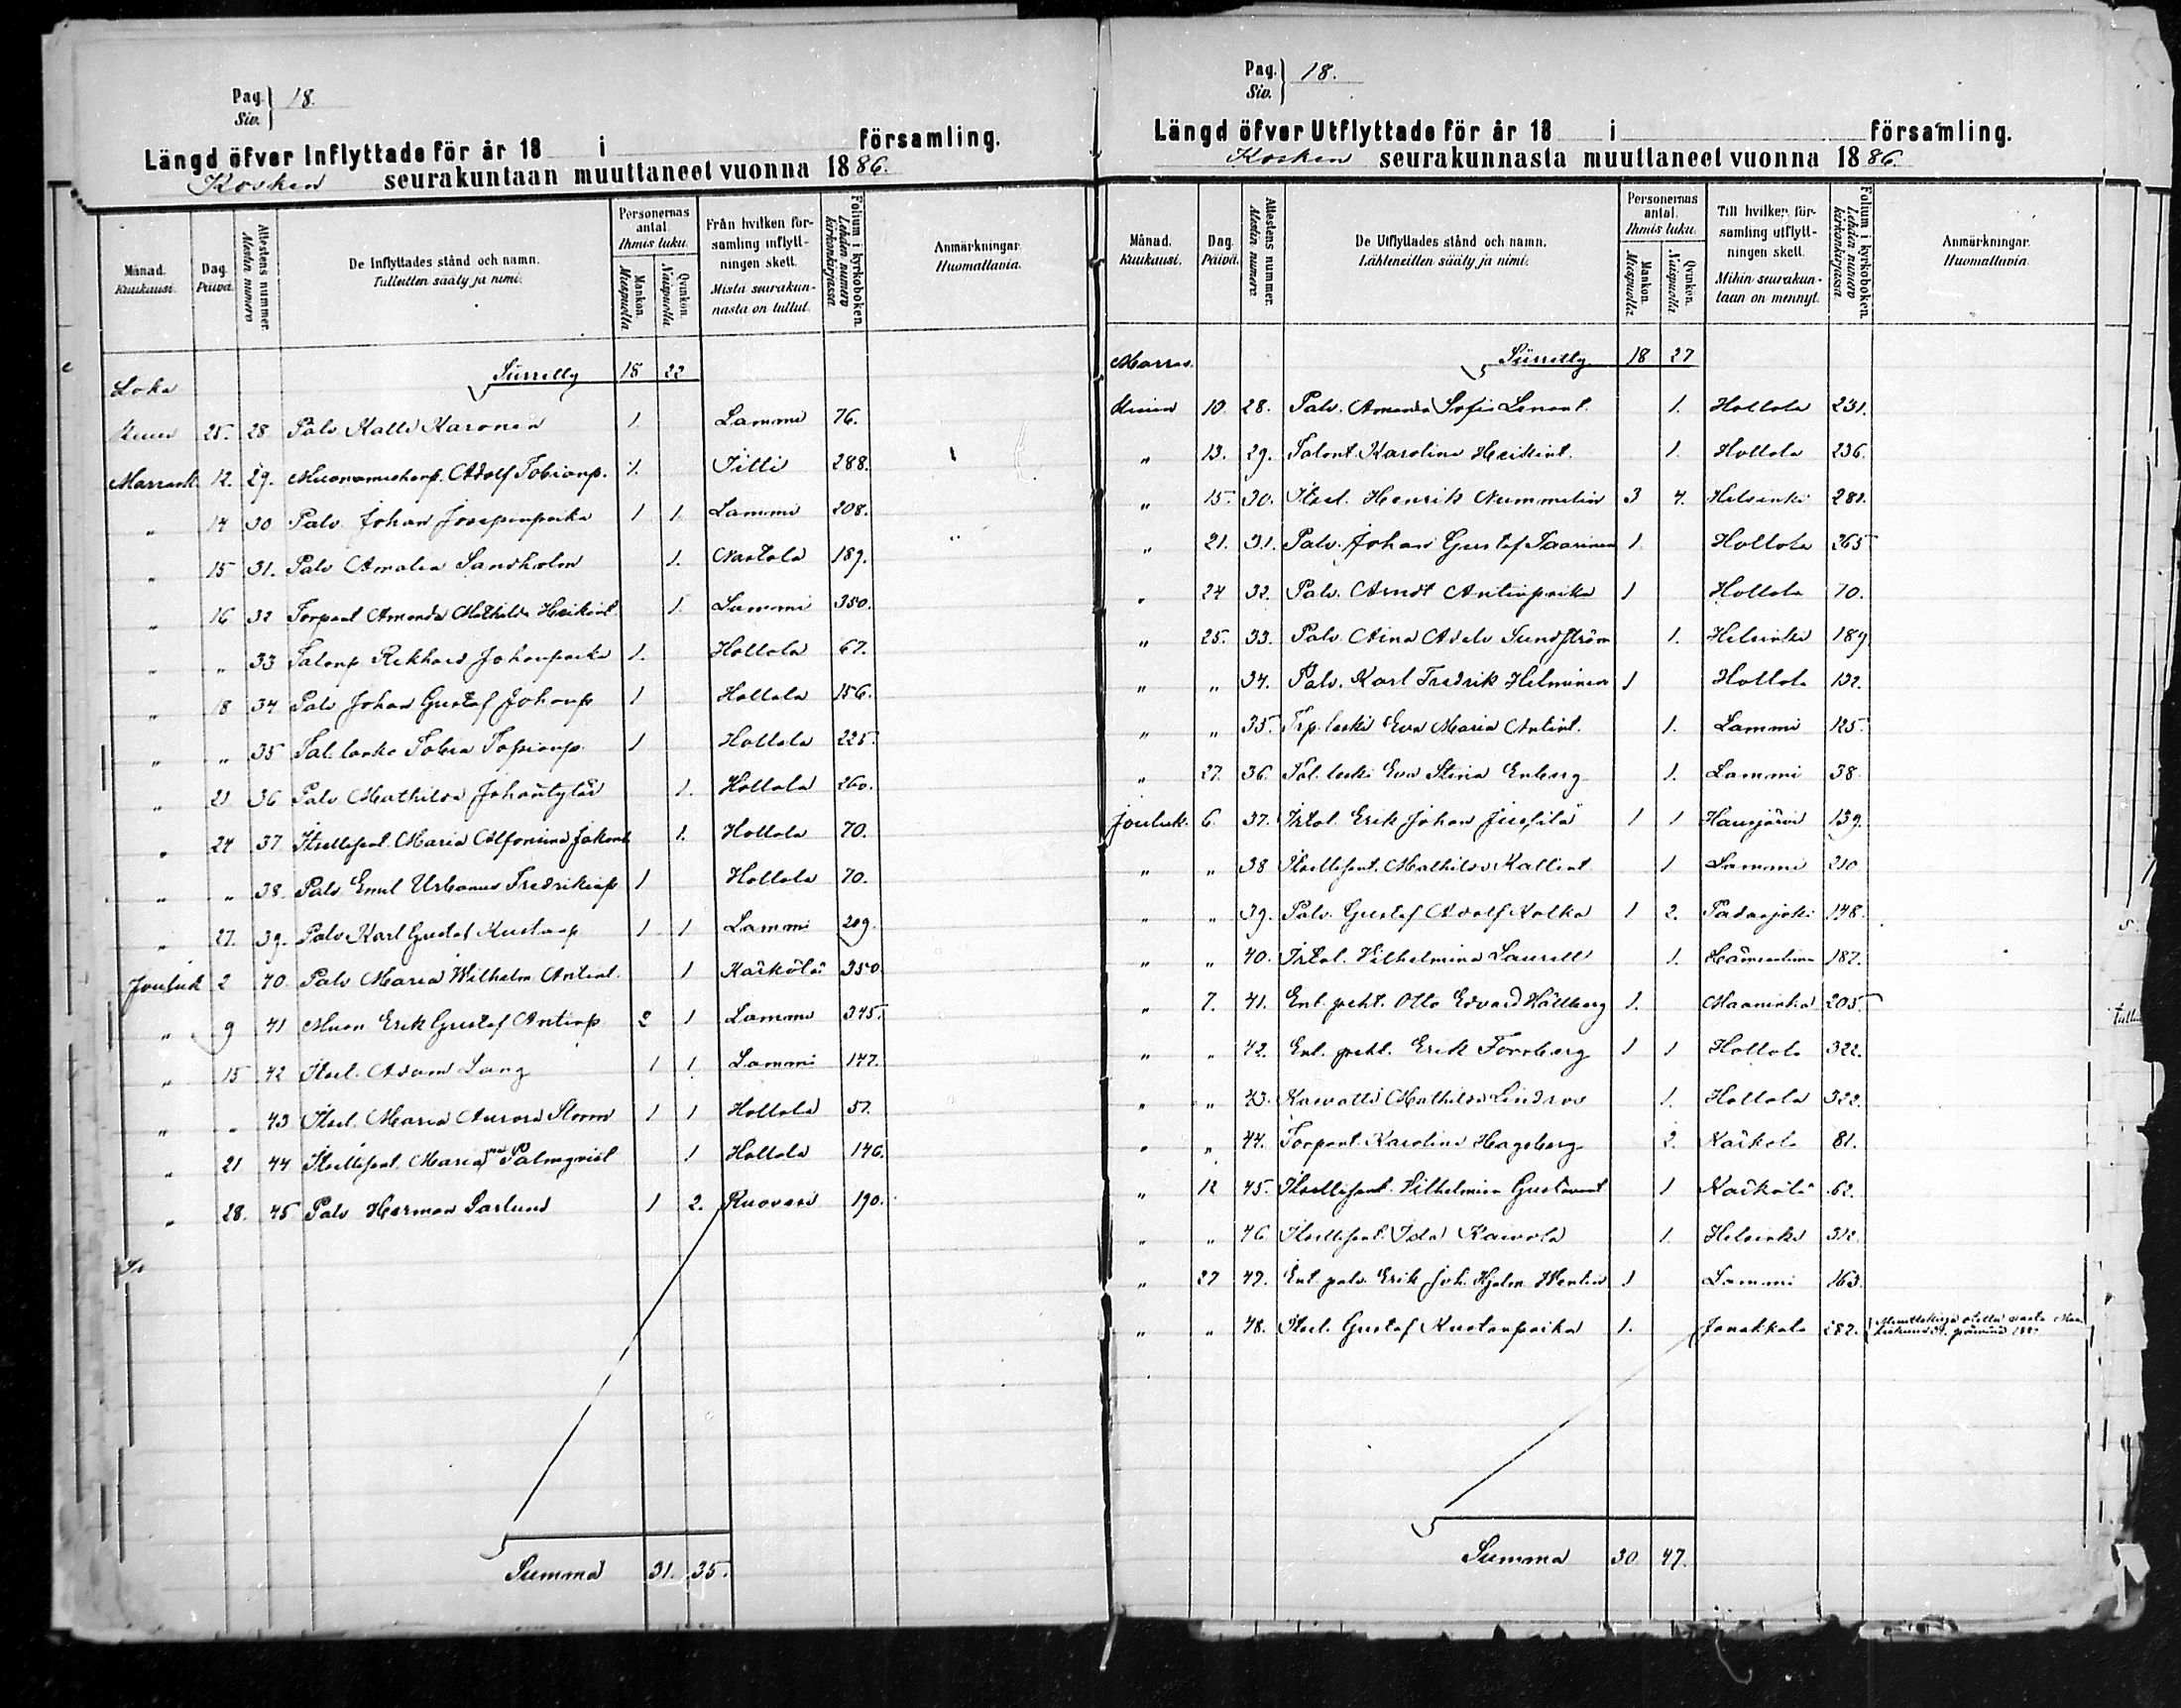 Pag. 18.
Siv.
Längd öfver Inflyttade för år 18 i församling.
Kosken seurakuntaan muuttaneet vuonna 1886.
Månad. Kuukausi.
Dag. Päivä.
Attestens nummer. Alestin numero
De Inflyttades stånd och namn. Tulleitten sääty ja nimi.
Personernas antal. Ihmis luku.
Mankön. Miespuolia
Qvinkön. Naispuolia
Från hvilken församling inflyttningen skett. Mistä seurakunnasta on tullut.
Folium i kyrkoboken. Lehden numero kirkonkirjassa
Anmärkningar. Huomattavia.
Siirretty 18 22
Loka
kuun 25. 28 Palv Kalle Karonen 1 Lammi 76.
Marrask. 12. 29. Adolf Tobianp. 1. Iitti 288.
„ 14 30 Palv Johan Josepinpoika 1 1 Lammi 208.
„ 15 31. Palv Amalia Sandholm 1. Nastola 189.
„ 16 32 Torpant Amanda Mathilda Heikint. 1. Lammi 350.
„ „ 33 Talonp. Rikhard Johanpoika 1. Hollola 67.
„ 18 34 Palv Johan Gustaf Johanp 1 Hollola 156.
„ „ 35 Tal. Tobias 1 Hollola 225.
„ 21 36 Palv Mathilda Johantytär 1. Hollola 260.
„ 24 37 Itsellisent. Maria Alfonsina Jakont 1. Hollola 70.
„ „ 38. Palv Emil Urbanus Fredrikinp 1 Hollola 70.
„ 27. 39. Palv Karl Gustaf Kustaap 1 1 Lammi 209.
Jouluk 2 40 Palv Maria Wilhelm. Antint. 1 Kärkölä 350
„ 9 41 Muon Erik Gustaf Antinp. 2 1 Lammi 345.
„ 15 42 Itsel. Adam Lang 1 1 Lammi 147.
„ „ 43 Itsel. Maria Aurora Storm 1 1 Hollola 57.
„ 21 44 Itsellisent. Maria Palmqvist 1 Hollola 146.
„ 28. 45 Palv Herman Sarlund 1 2. Ruovesi 190.
Summa 31. 35.
Pag. 18.
Siv.
Längd öfver Utflyttade för år 18 i församling.
Kosken seurakunnasta muuttaneet vuonna 1886.
Månad. Kuukausi.
Dag. Päivä.
Attestens nummer. Alestin numero
De Utflyttades stånd och namn. Lähteneitten sääty ja nimi.
Personernas antal. Ihmis luku.
Mankön. Miespuolia
Qvinkön. Naispuolia
Till hvilken församling utflyttningen skett. Mihin seurakuntaan on mennyt.
Folium i kyrkoboken. Lehden numero kirkonkirjassa
Anmärkningar. Huomattavia.
Marras. Siirretty 18 27
kuun 10. 28. Palv. Amanda Sofia 1. Hollola 231.
„ 13. 29. Talont. Karolina Heikint. 1. Hollola 236.
„ 15. 30. Itsel. Henrik Nummelin 3 4. Helsinki 281.
„ 21. 31. Palv. Johan Gustaf Saarinen 1. Hollola 265
„ 24 32. Palv. Antinpoika 1 Hollola 70.
„ 25. 33. Palv. Aina Adele Sundström 1. Helsinki 189
„ „ 34. Palv. Karl Fredrik Helminen 1 Hollola 132.
„ „ 35. Trp. leski Eva Maria Antint. 1. Lammi 125.
„ 27. 36. Tal. leski Eva Stina Enberg 1. Lammi 38.
Jouluk. 6. 37. Itsel. Erik Johan 1 1 Hausjärvi 139.
„ „ 38 Itsellisent. Mathilda Kallent. 1 Lammi 210
„ „ 39. Palv. Gustaf Adolf Kolka 1 2. Padasjoki 148.
„ „ 40. Itsel. Vilhelmina Laurell 1. Hämeenlinna 187.
„ 7. 41. Ent. Otto Edvard Hällberg 1. Maaninka 205
„ „ 42. Ent. Erik Forsberg 1 1 Hollola 322.
„ „ 43. Mathilda Lindroos 1. Hollola 322.
„ „ 44. Torpant. Karolina Hagelberg 2. Kärkölä 81.
„ 12 45. Itsellisent. Vilhelmina Gustavent 1 Kärkölä 62.
„ „ 46. Itsellisent. Ida Kaivola 1. Helsinki 312.
„ 27 47. Ent. palv. Erik Joh. Hjalm. 1 Lammi 163.
„ „ 48. Itsel. Gustaf Kustaanpoika 1. Janakkala 287. Muuttokirja
Summa 30 47.